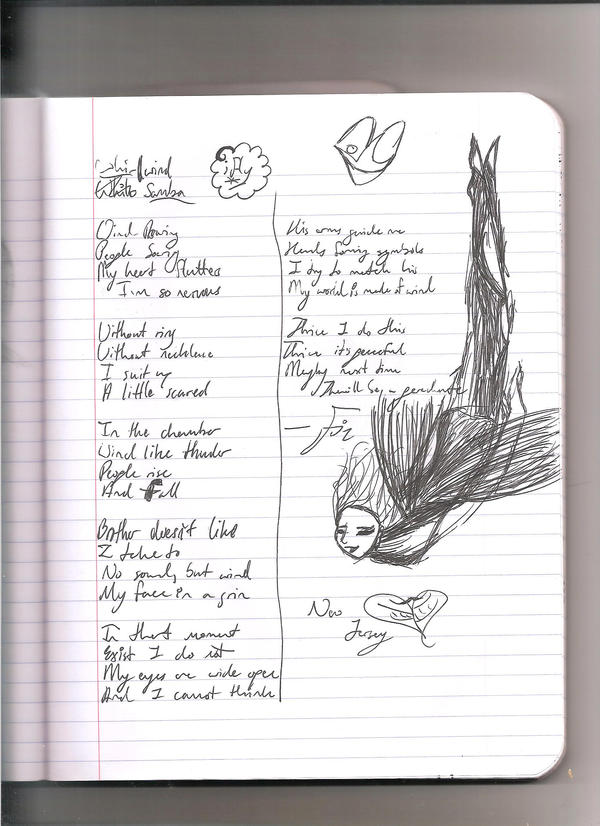 Whirlwind
White Samba
ifly
Wind Roaring
People Soaring
My heart flutters
I'm so nervous
Without ring
Without necklace
I suit up
A little scared
In the chamber
Wind like thunder
People rise
And Fall
Brother doesn't like
I take to
No sound, but wind
My face in a grin
In that moment
Exist I do not
My eyes are wide open
And I cannot think
His arms guide me
Hands forming symbols
I try to match his
My world is made of wind
Thrice I do this
Thrice it's peaceful
Maybe next time
There'll be a parachute
New
Jersey